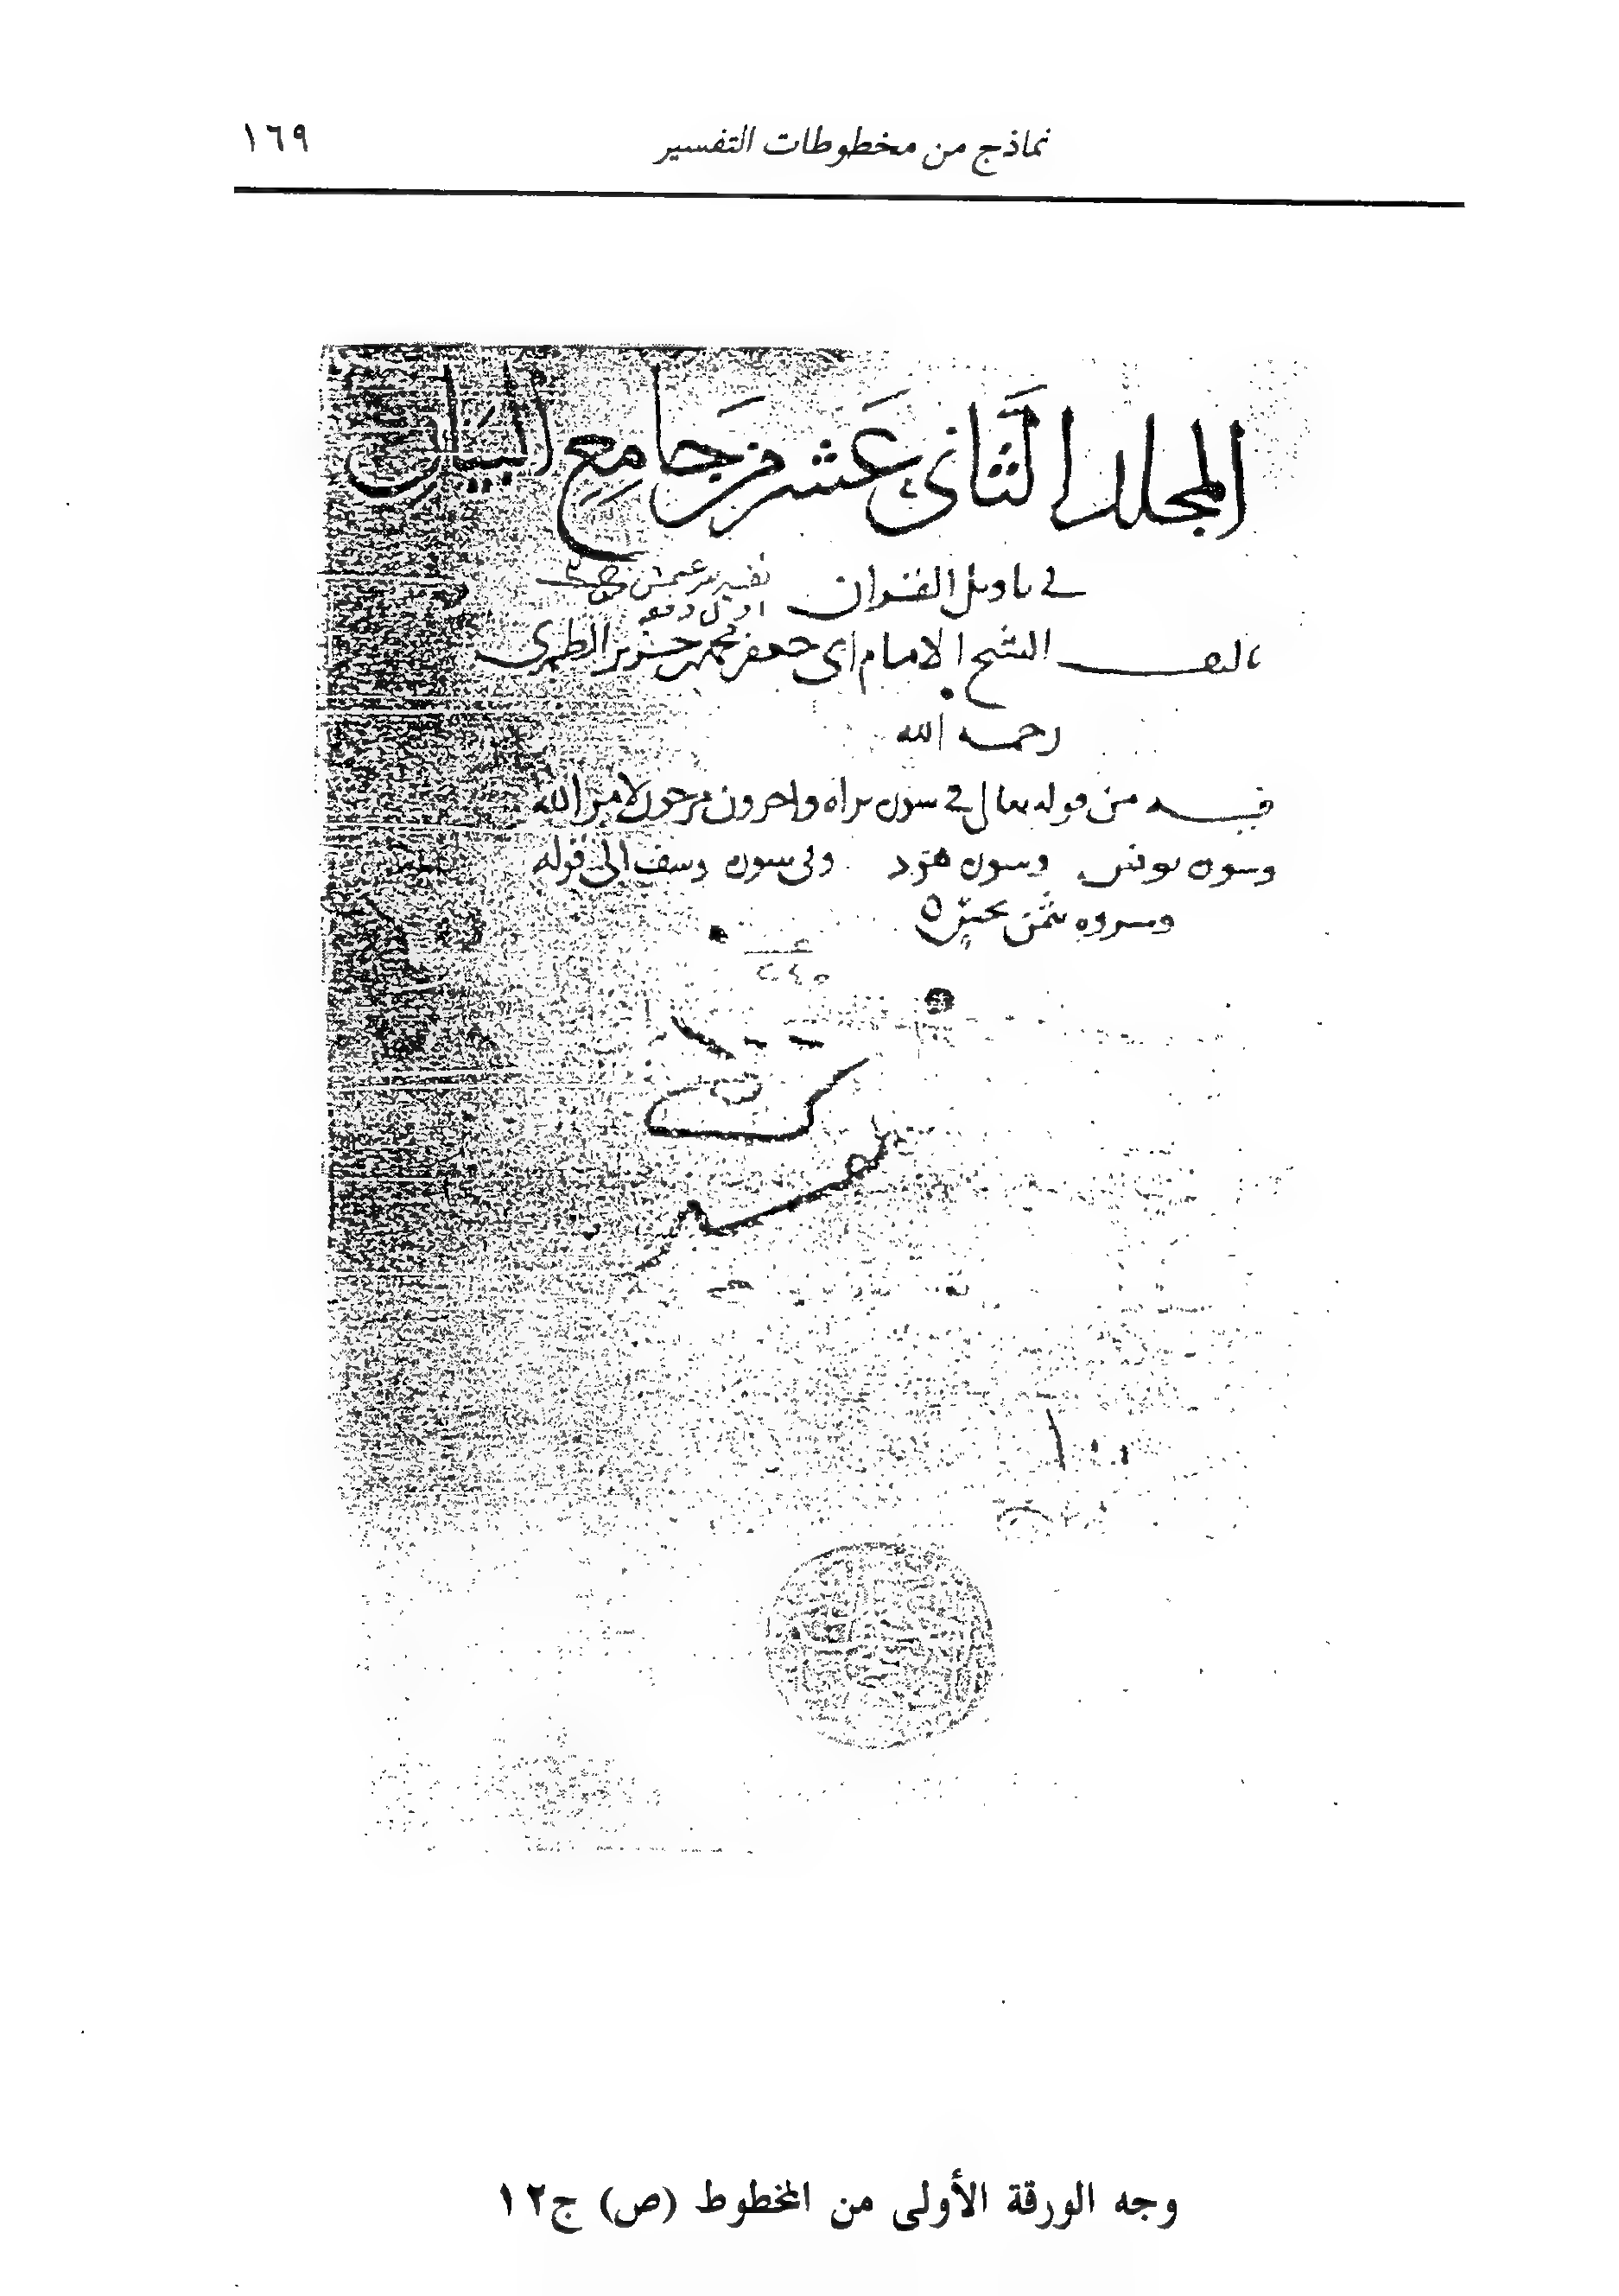 نماذج من مخطوطات التفسير ١٦٩
المجلد الثاني عشر من جامع البيان
في تاويل القران
تاليف الشيخ الامام ابي جعفر محمد بن جرير الطبري
رحمه الله
فيه من قوله تعالى في سورة براه واخرون مرجون لامر الله
وسورة يونس وسورة هود وفي سورة يوسف الى قوله
وشروه بثمن بخس
وجه الورقة الأولى من المخطوط (ص) ج١٢